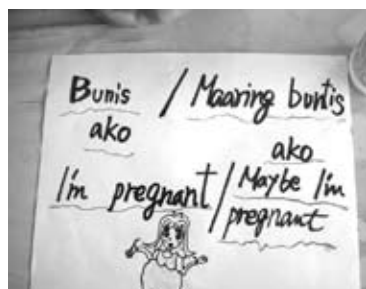 Bunis / Maaring buntis
ako
ako
I'm pregnant / Maybe I'm
pregnant